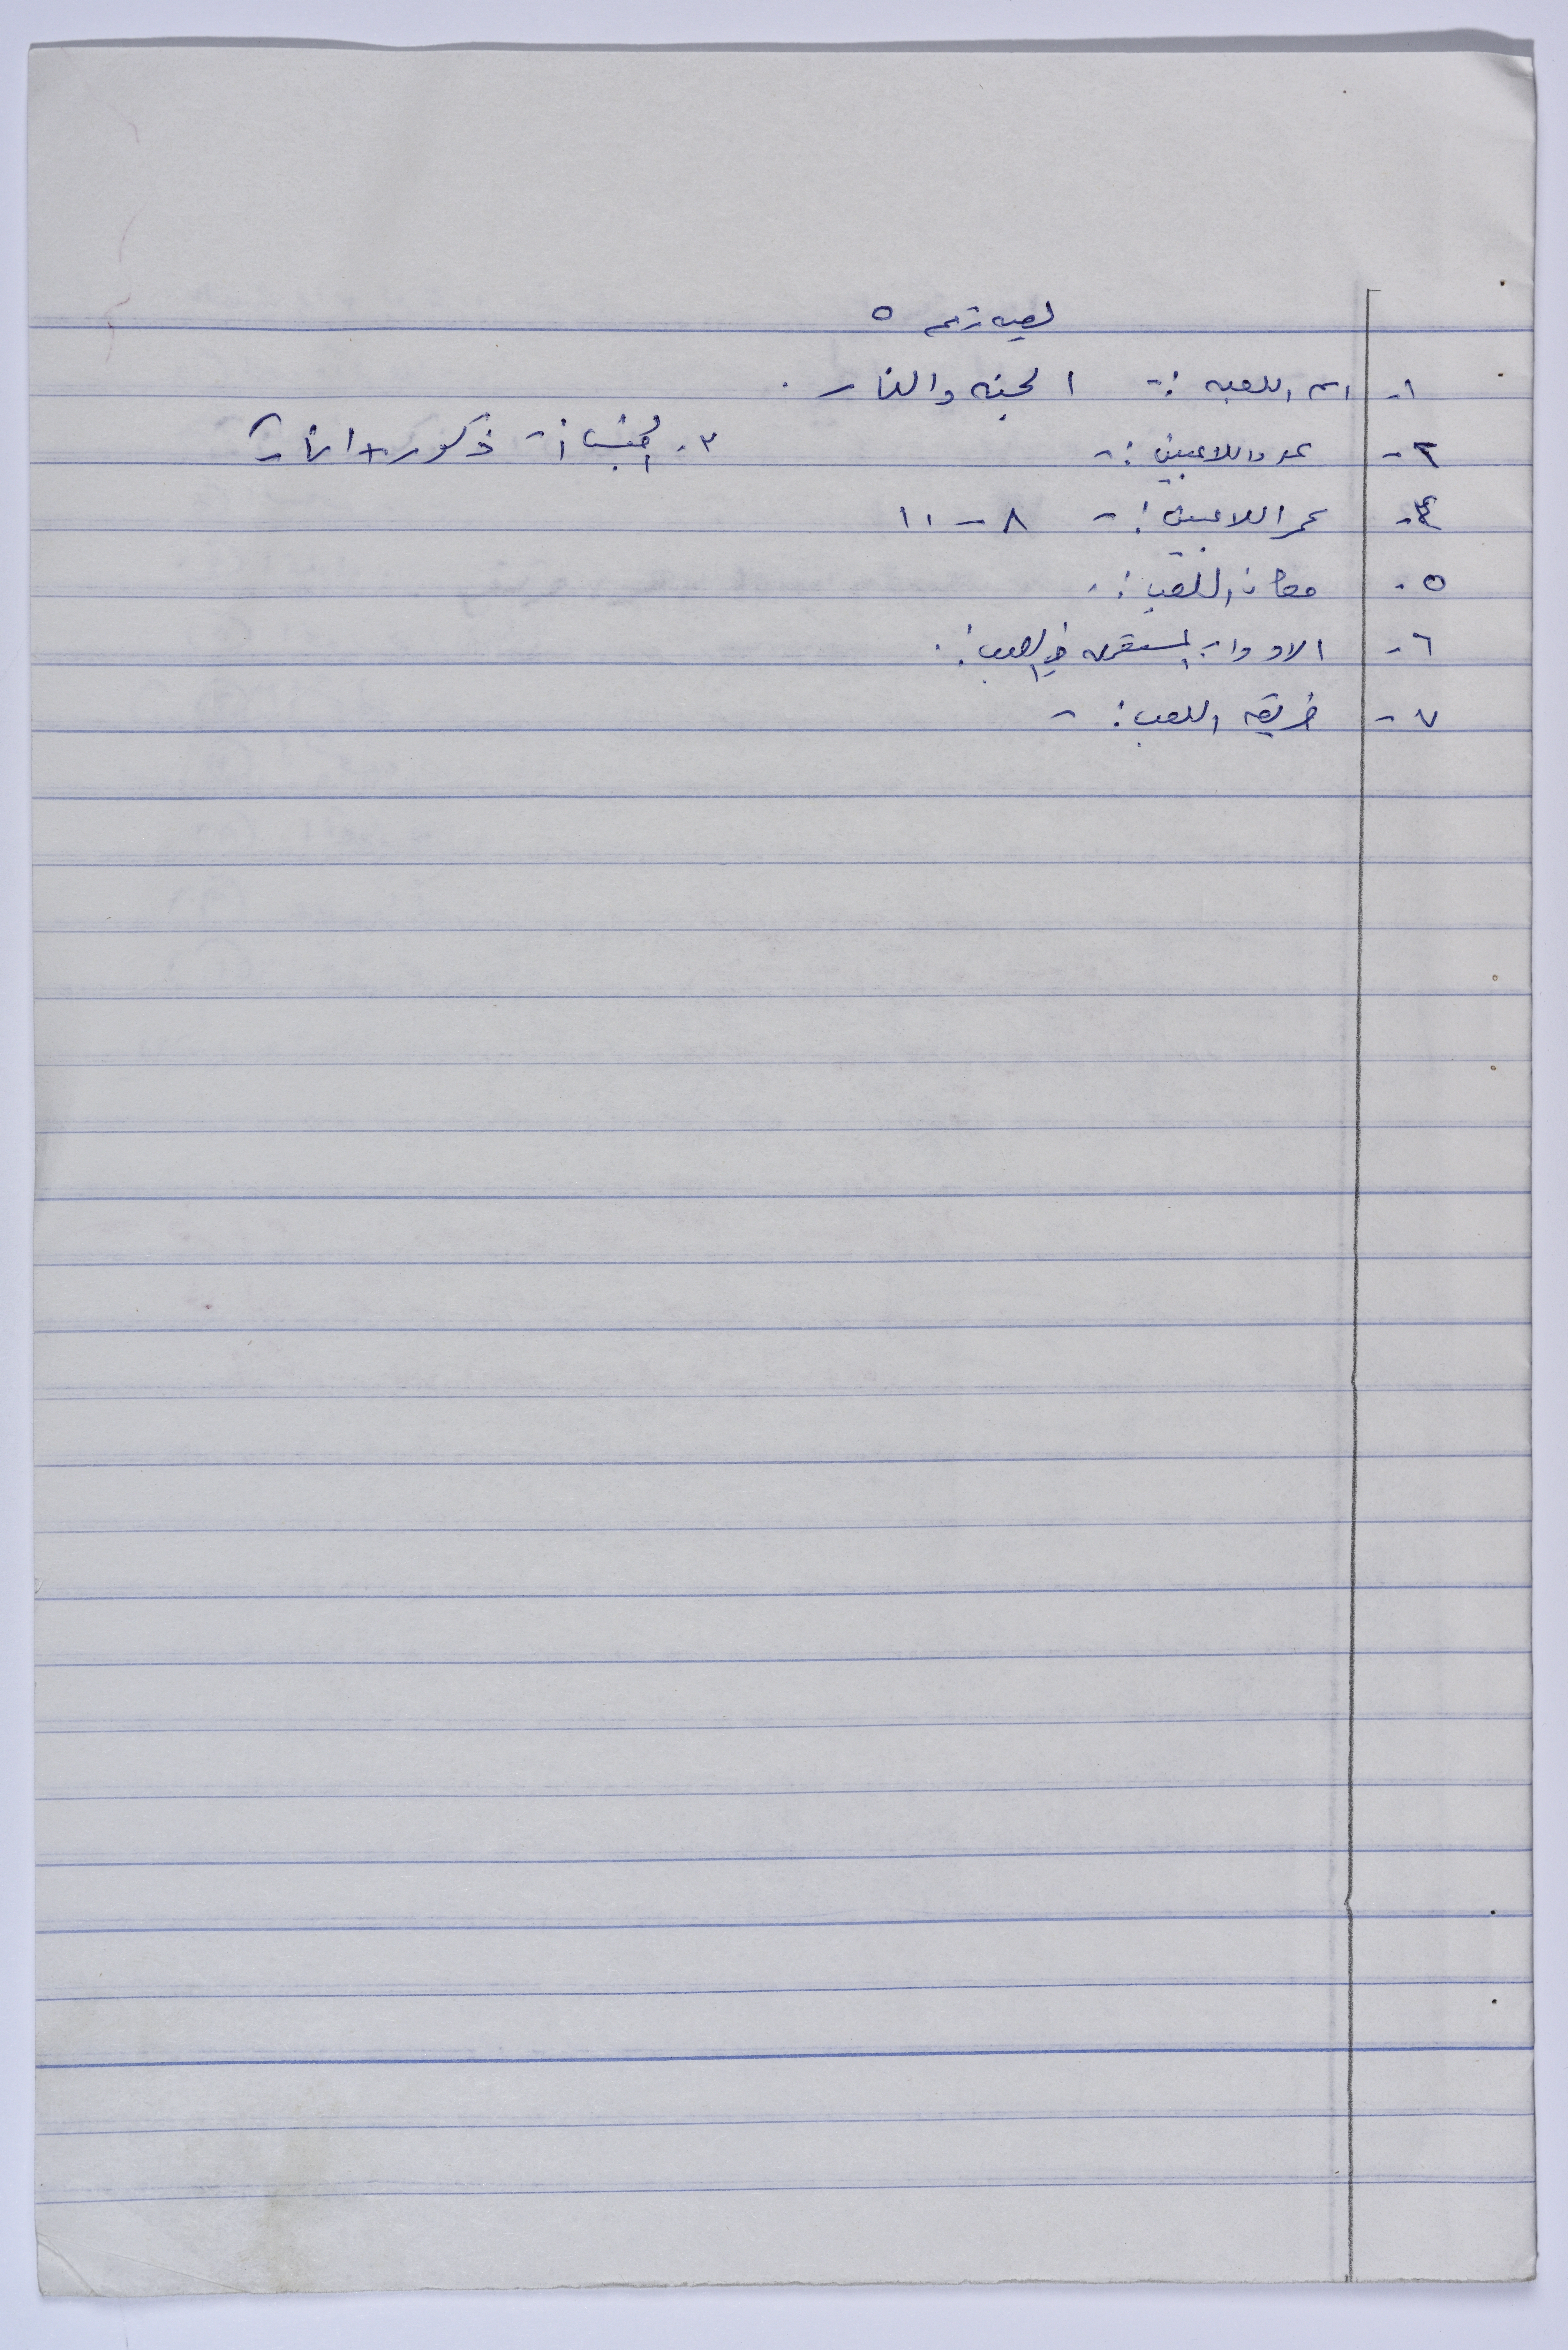 لعبه رقم ٥
١- اسم اللعبه :- الجنه والنار .
٢- عدد اللاعبين :- ٣- الجنس :- ذكور + اناث
٤- عمر اللاعبين :- ٨ - ١١
٥- مكان اللعب :-
٦- الادوات المستخدمه في اللعب :-
٧- طريقه اللعب :-